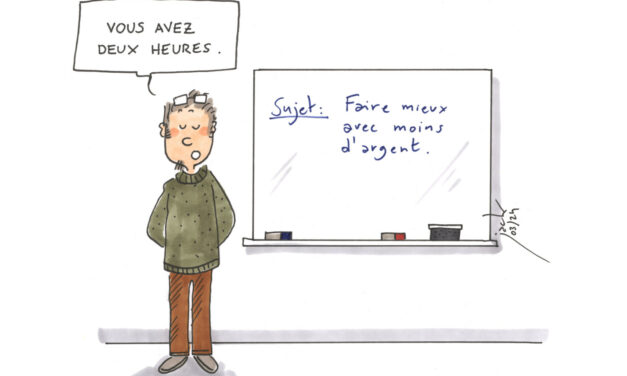 VOUS AVEZ
DEUX HEURES.
Sujet: Faire mieux
avec moins
d'argent.
03/24